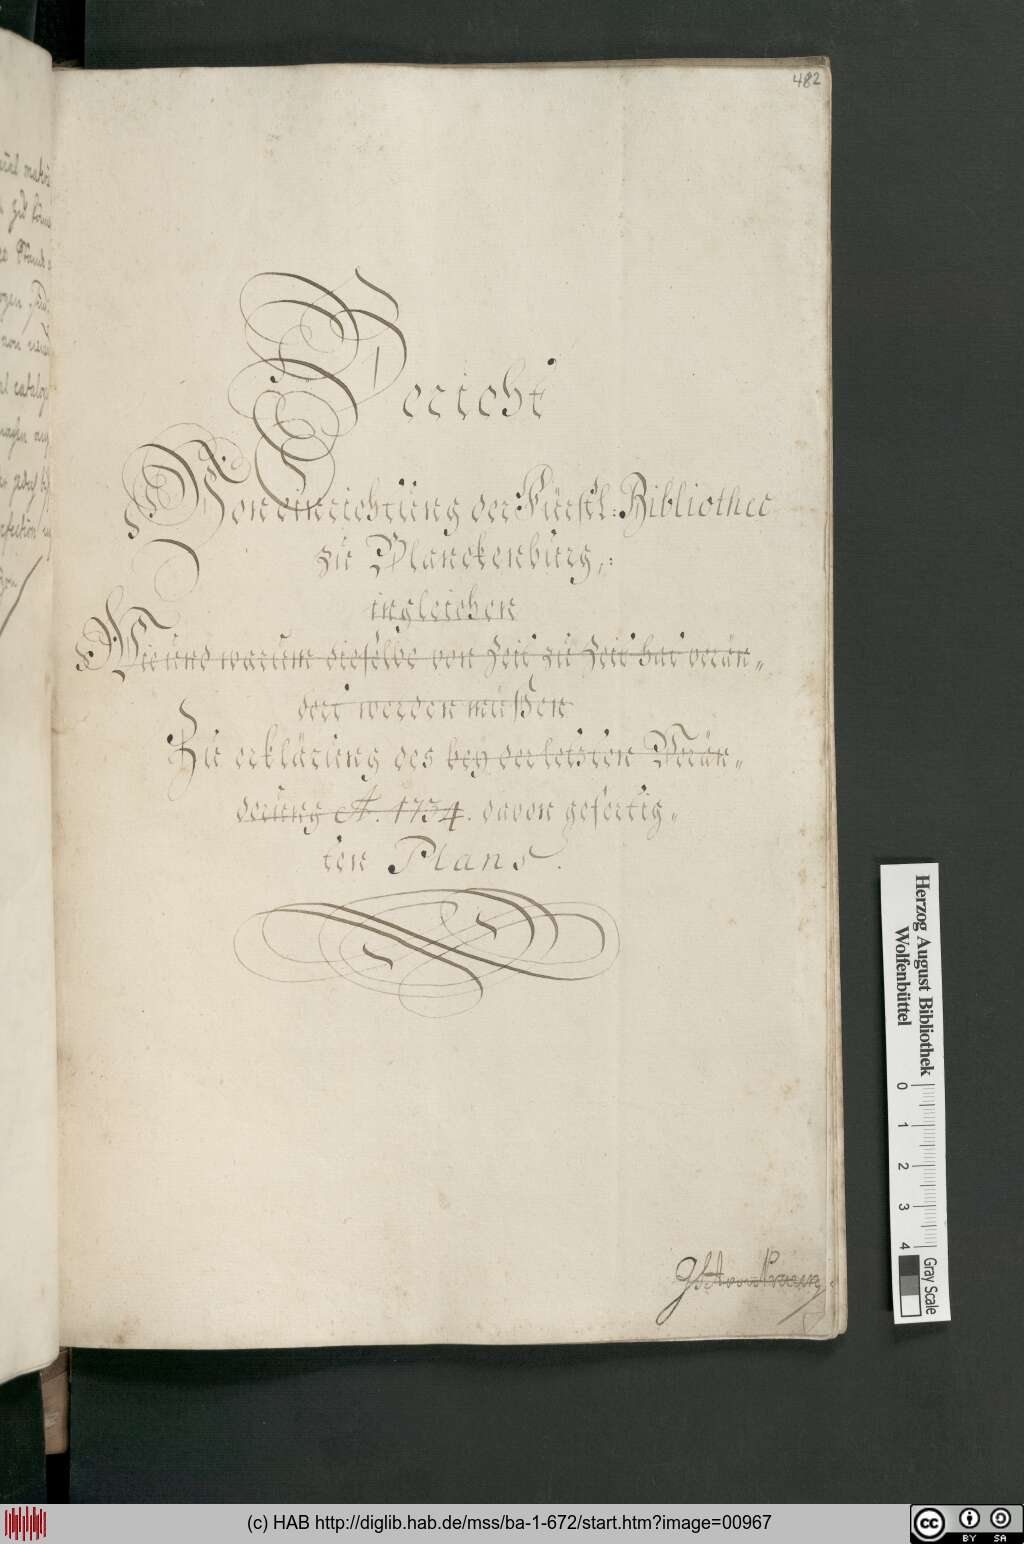 482
Bericht
Von einrichtung der Fürstl: Bibliothec
zu Blanckenburg,:
ingleichen
Wie und warum dieselbe von Zeit zu Zeit hat verän„
dert werden müßen
Zu erklärung des bey der letzten Verän„
derung A. 1734. davon gefertig„
ten Plans.
Herzog August Bibliothek
Wolfenbüttel
0 1 2 3 4
Gray Scale
(c) HAB http://diglib.hab.de/mss/ba-1-672/start.htm?image=00967
cc BY SA